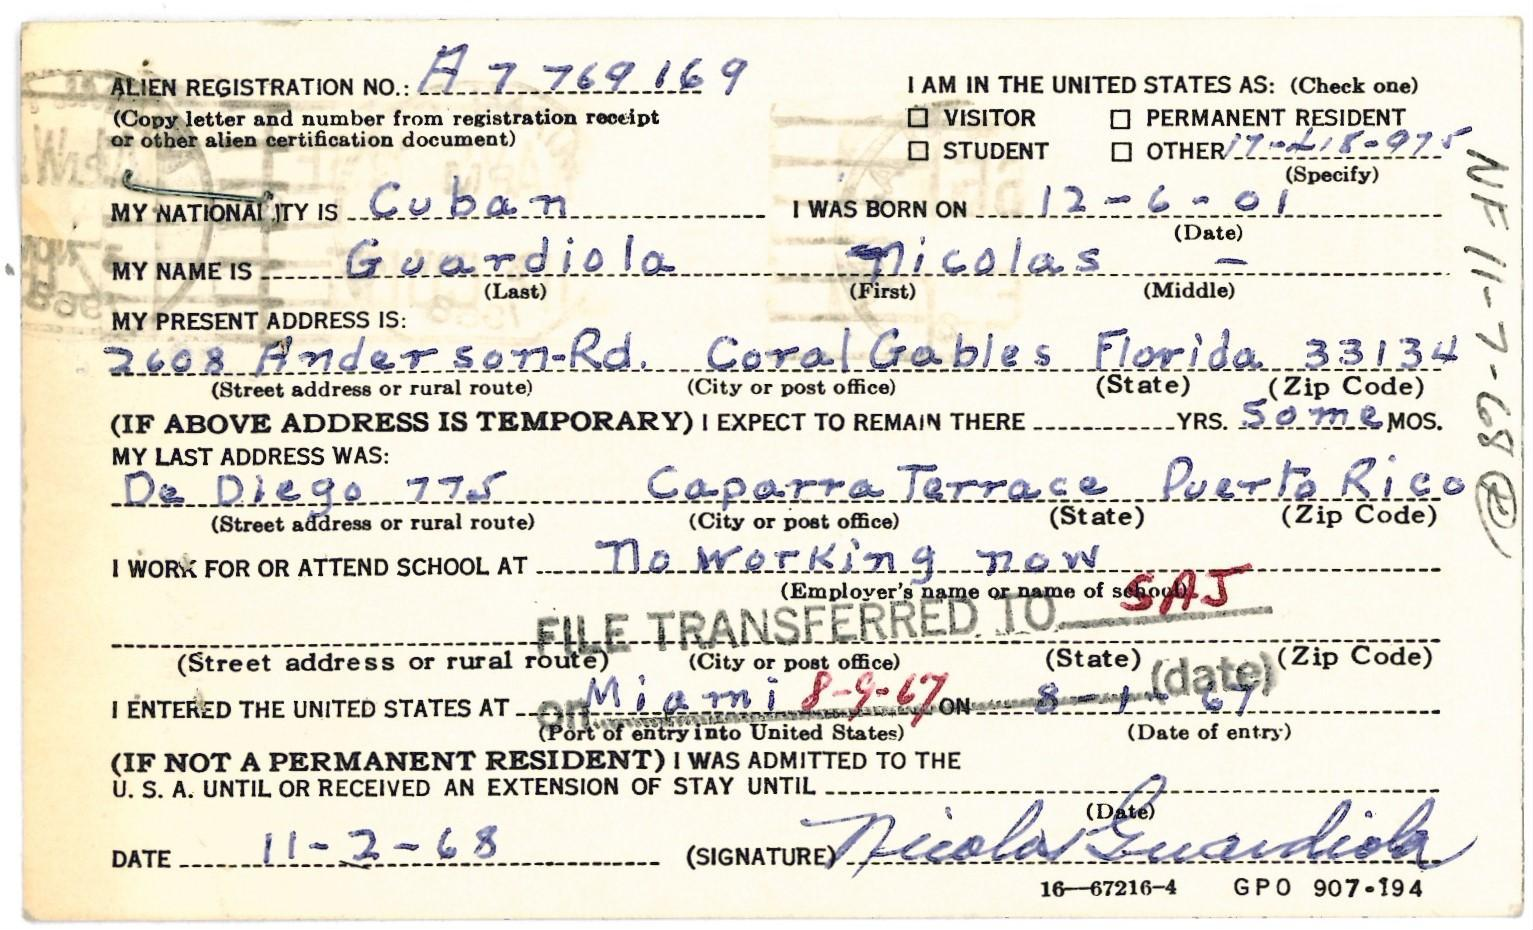 ALIEN REGISTRATION NO.: A 7 769 169
(Copy letter and number from registration receipt
or other alien certification document)
I AM IN THE UNITED STATES AS: (Check one)
☐ VISITOR ☐ PERMANENT RESIDENT
☐ STUDENT ☐ OTHER 17-218-975
(Specify)
MY NATIONALITY IS Cuban I WAS BORN ON 12-6-01
(Date)
MY NAME IS Guardiola Nicolas -
(Last) (First) (Middle)
MY PRESENT ADDRESS IS:
2608 Anderson-Rd. Coral Gables Florida 33134
(Street address or rural route) (City or post office) (State) (Zip Code)
(IF ABOVE ADDRESS IS TEMPORARY) I EXPECT TO REMAIN THERE YRS. Some MOS.
MY LAST ADDRESS WAS:
De Diego 775 Caparra Terrace Puerto Rico
(Street address or rural route) (City or post office) (State) (Zip Code)
I WORK FOR OR ATTEND SCHOOL AT No working now
(Employer's name or name of school)
FILE TRANSFERRED TO SAJ
(Street address or rural route) (City or post office) (State) (Zip Code)
on 8-9-67 (date)
I ENTERED THE UNITED STATES AT Miami ON 8-1-67
(Port of entry into United States) (Date of entry)
(IF NOT A PERMANENT RESIDENT) I WAS ADMITTED TO THE
U. S. A. UNTIL OR RECEIVED AN EXTENSION OF STAY UNTIL
(Date)
DATE 11-2-68 (SIGNATURE) Nicolas Guardiola
16—67216-4 GPO 907-194
NF 11-7-68